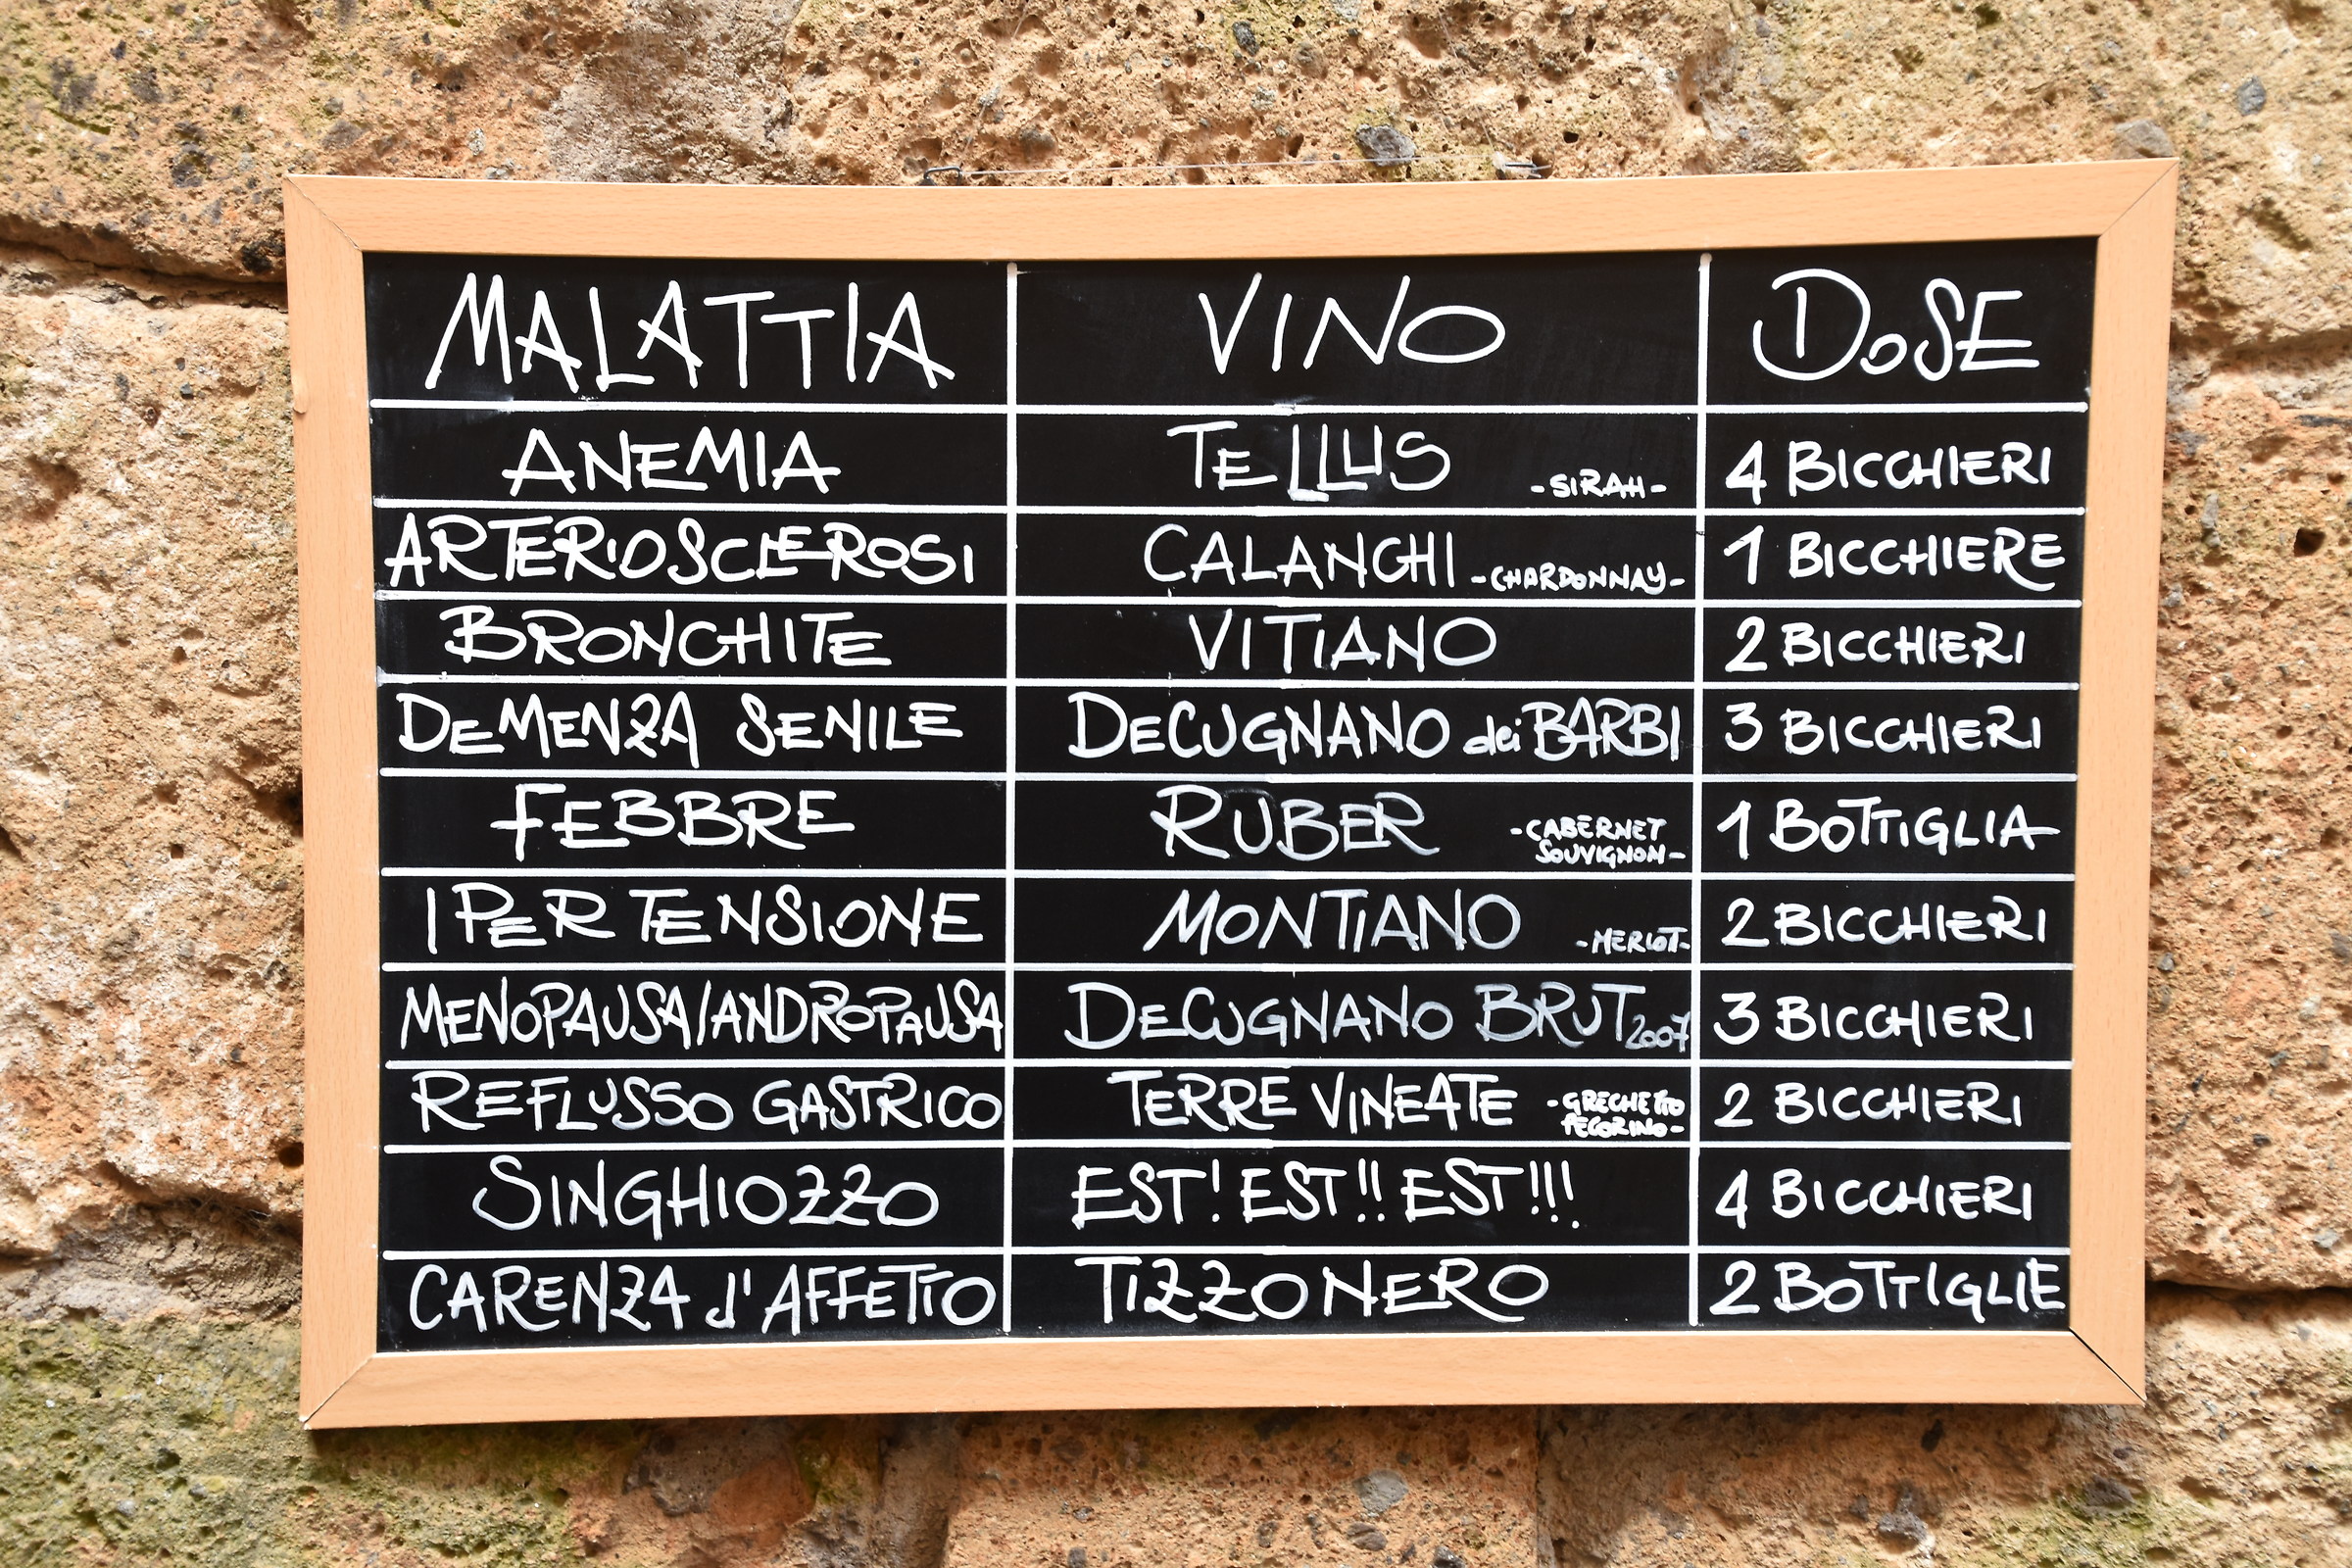 MALATTIA VINO DOSE
ANEMIA TELLUS -SIRAH- 4 BICCHIERI
ARTERIOSCLEROSI CALANGHI -CHARDONNAY- 1 BICCHIERE
BRONCHITE VITIANO 2 BICCHIERI
DEMENZA SENILE DECUGNANO dei BARBI 3 BICCHIERI
FEBBRE RUBER -CABERNET SOUVIGNON- 1 BOTTIGLIA
IPERTENSIONE MONTIANO -MERLOT- 2 BICCHIERI
MENOPAUSA/ANDROPAUSA DECUGNANO BRUT 2007 3 BICCHIERI
REFLUSSO GASTRICO TERRE VINEATE -GRECHETTO PECORINO- 2 BICCHIERI
SINGHIOZZO EST! EST!! EST!!! 4 BICCHIERI
CARENZA d'AFFETTO TIZZONERO 2 BOTTIGLIE